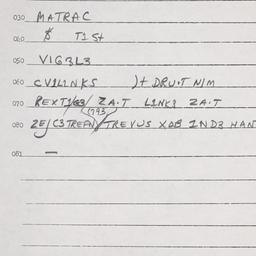 030 MATRAC
060 $ T1St
050 VIG3L3
060 CVILINKS )t DRU·T N/M
070 REXT1/ / ZA·T LINK? ZA·T
(793
080 2E/C3TREFN TREVUS XOB IND3 HAN
081 —